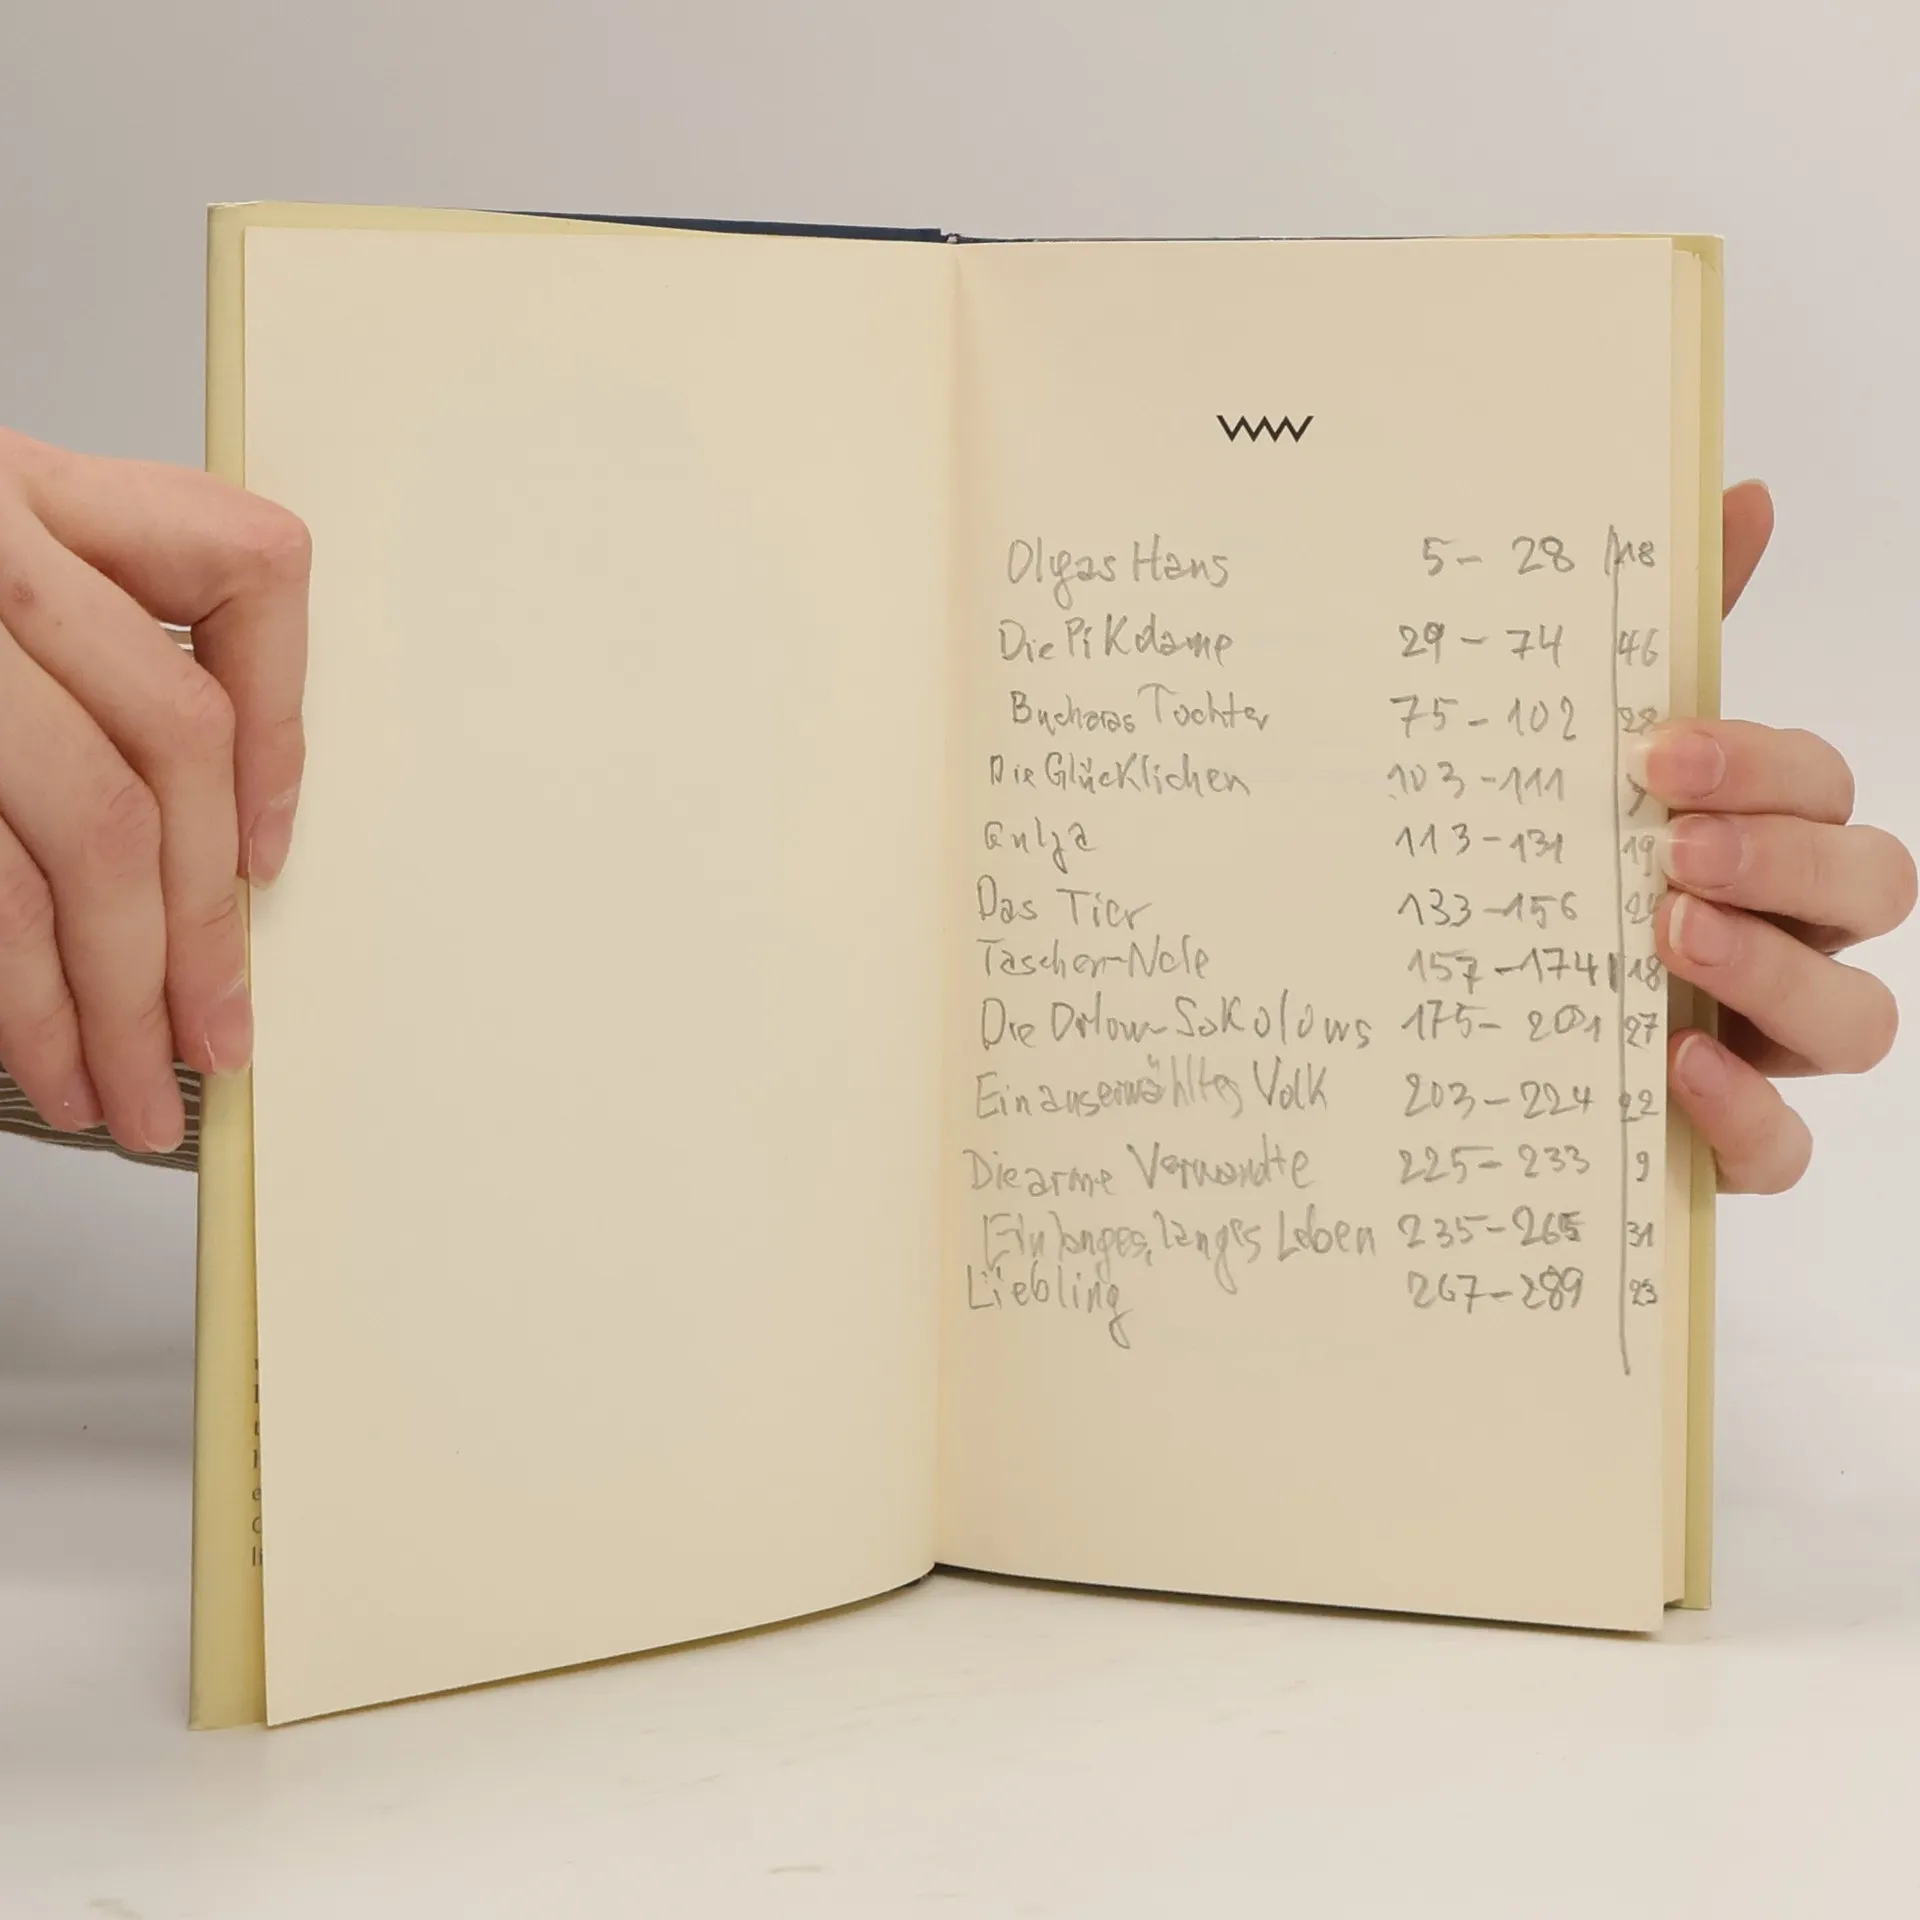 Olgas Haus 5 - 28 18
Die Pikdame 29 - 74 46
Bucharas Tochter 75 - 102 28
Die Glücklichen 103 - 111 9
Gulja 113 - 131 19
Das Tier 133 - 156 24
157 - 174 18
Die Orlow-Sokolows 175 - 201 27
Ein auserwähltes Volk 203 - 224 22
Die arme Verwandte 225 - 233 9
Ein langes, langes Leben 235 - 265 31
Liebling 267 - 289 23